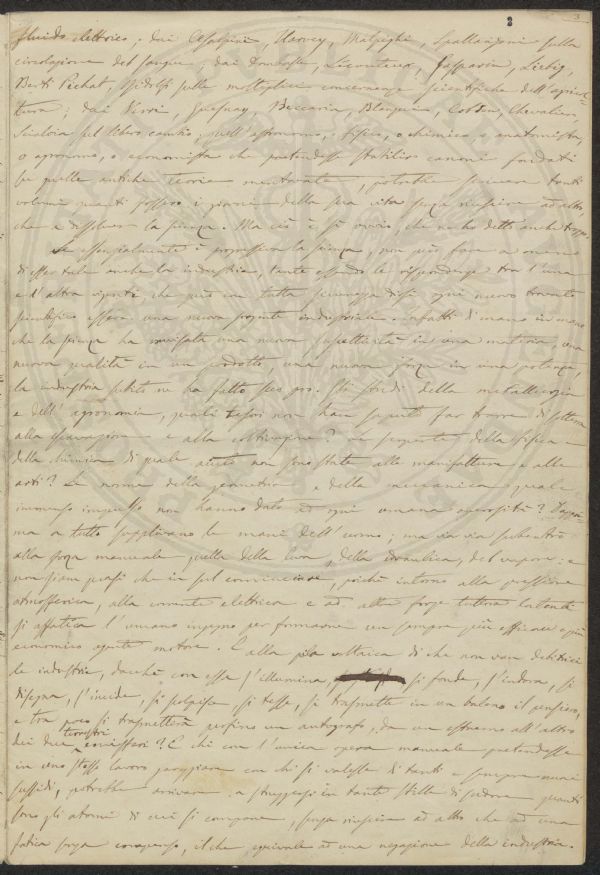 3
fluido elettrico; dai Cesalpini, Harvey, Malpighi, Spallanzani sulla
circolazione del sangue; dai Dombasle, Gasparin, Liebig,
Berti Pichat, Ridolfi sulle molteplici conoscenze scientifiche dell'agricol-
tura; dai Verri, Quesnay, Beccaria, Blanqui, Cobden, Chevalier,
Scialoia sul libero cambio; quell'astronomo, o fisico, o chimico o anatomista,
o agronomo, o economista che pretendesse stabilire canoni fondati
su quelle antiche teorie mentovate, potrebbe scrivere tanti
volumi quanti fossero i giorni della sua vita senza riuscire ad altro,
che a dissolvere la scienza. Ma ciò è sì ovvio, che ne ho detto anche troppo.
Se essenzialmente è progressiva la scienza, non può fare a meno
di esser tale anche la industria, tante essendo le rispondenze tra l'una
e l'altra che può con tutta sicurezza dirsi ogni nuovo trovato
scientifico essere una nuova sorgente industriale. Infatti di mano in mano
che la scienza ha ravvisata una nuova suscettività in una materia, una
nuova qualità in un prodotto, una nuova forza in una potenza,
la industria subito ne ha fatto suo pro. Gli studi della metallurgia
e dell'agronomia, quali tesori non han saputo far trarre di sotterra
alla escavazione e alla coltivazione? Le scoperte della fisica e
della chimica di quale aiuto non sono state alle manifatture e alle
arti? Le norme della geometria e della meccanica quale
immenso impulso non hanno dato ad ogni umana operosità? Dappri-
ma a tutto supplivano le mani dell'uomo; ma via via subentrò
alla forza manuale quella della leva, della idraulica, del vapore: e
non siam quasi che in sul cominciare, poichè intorno alla pressione
atmosferica, alla corrente elettrica e ad altre forze tuttora latenti
si affatica l'umano ingegno per formarne un sempre più efficace e più
economico agente motore. E alla pila voltaica di che non van debitrici
le industrie, dacchè con essa s'illumina, si fonde, s'indora, si
disegna, s'incide, si scolpisce, si tesse, si trasmette in un baleno il pensiero,
e tra poco si trasmetterà perfino un autografo, da un estremo all'altro
dei due terrestri emisferi? E chi con l'unica opera manuale pretendesse
in uno stesso lavoro gareggiare con chi si valesse di tanti e sempre nuovi
sussidi, potrebbe arrivare a struggersi in tante stille di sudore quanti
sono gli atomi di cui si compone, senza riuscire ad altro che ad una
fatica senza compenso, il che equivale ad una negazione della industria.